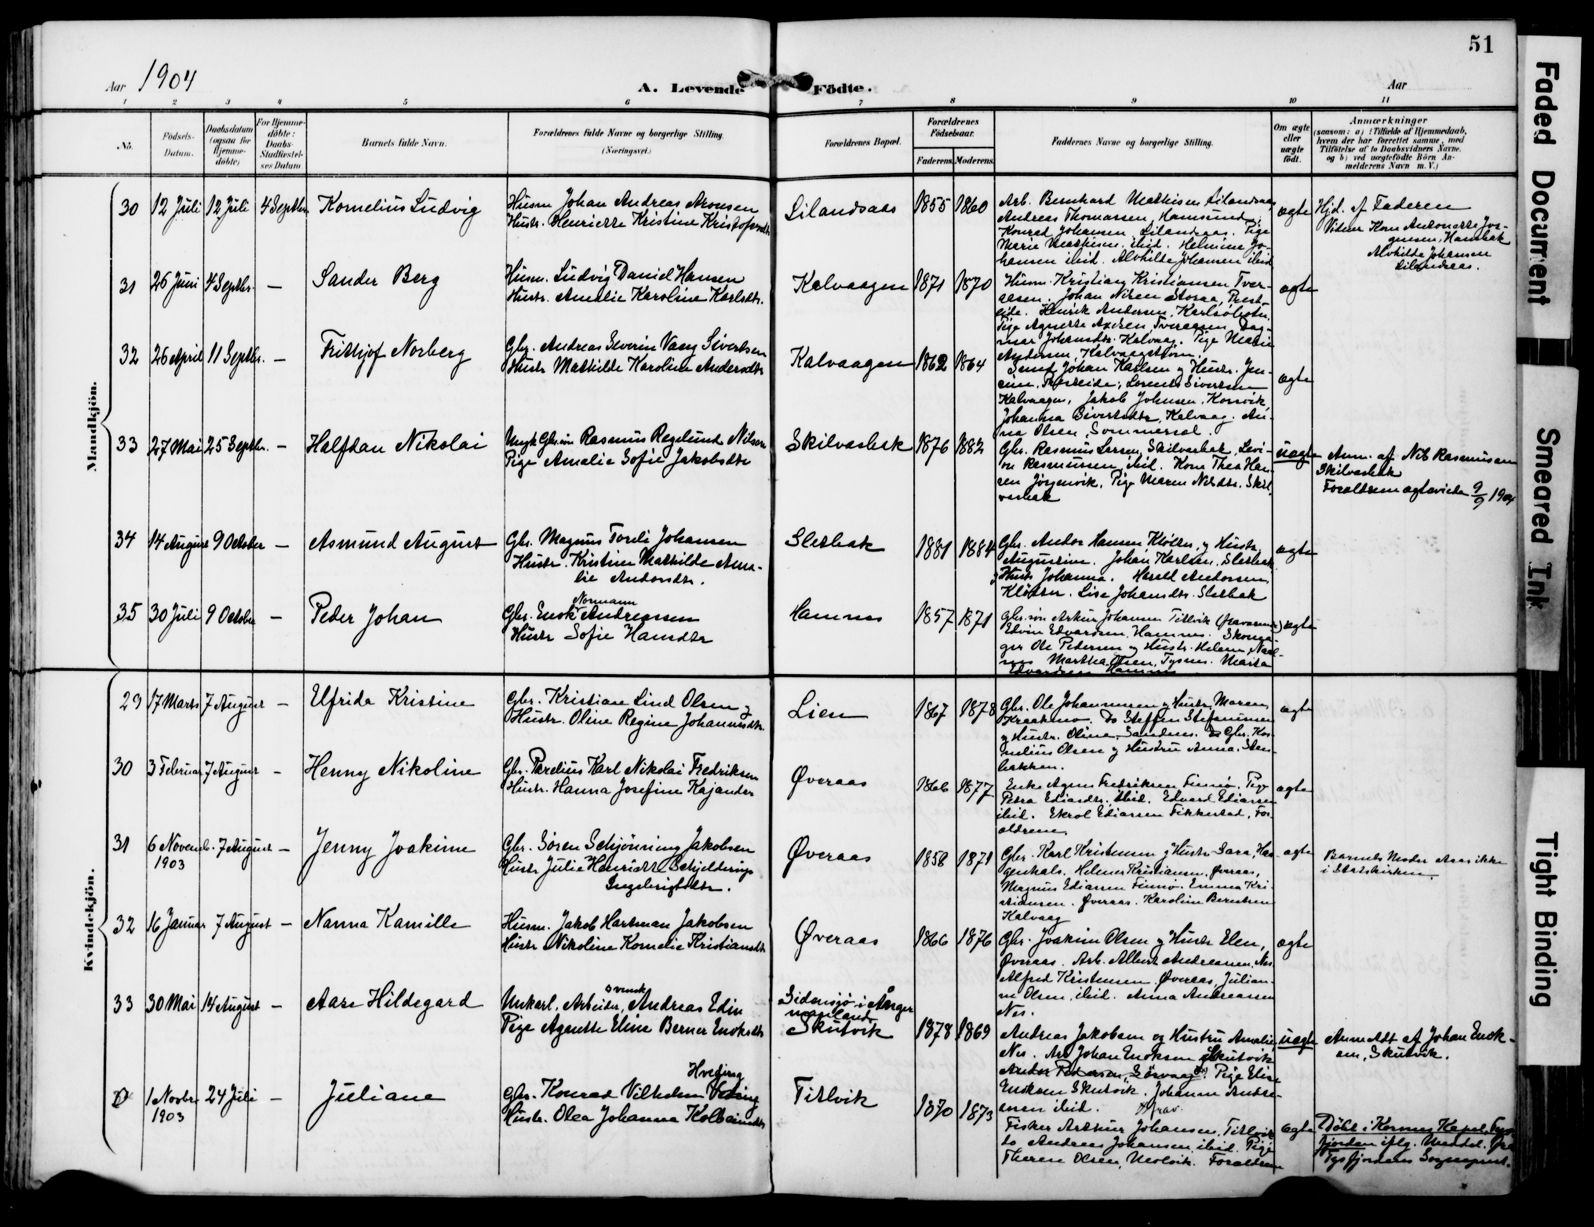 51
Aar 1904
A. Levende Födte.
Aar
1 2 3 4 5 6 7 8 9 10 11
No.
Födsels-Datum.
Daabsdatum (ogsaa for Hjemme-döbte)
For Hjemme-döbte: Daabs-Stadfæstel-ses Datum
Barnets fulde Navn.
Forældrenes fulde Navne og borgerlige Stilling. (Næringsvei.)
Forældrenes Bopæl.
Forældrenes Födselsaar.
Faderens Moderens
Faddernes Navne og borgerlige Stilling.
Om ægte eller uægte födt.
Anmærkninger
(saasom: a) i Tilfælde af Hjemmedaab,
hvem der har forrettet samme, med
Tilföielse af to Daabsvidners Navne,
og b) ved uægtefödte Börn An-
melderens Navn m. V.)
Mandkjön.
30 12 Juli 12 Juli 4 Septbr. Kornelius Ludvig
Husm Johan Andreas Aronsen
Hustr. Henriette Kristine Kristofersdtr
Lilandsaas 1855 1860
Arb. Bernhard Mathisen Lilandsaas
Andreas Thomassen, Hamsund,
Konrad Johansen, Lilandsaas. Pige
Marie Mathisen, ibid. Helmine Jo-
hansen ibid. Alvhilde Johansen ibid
ægte
Hjd. af Faderen
Vidner Kone Antonette Jör-
gensen, Hambak
Alvhilde Johansen
Lilandsaas.
31 26 Juni 4 Septbr. — Sander Berg
Husm. Ludvig Daniel Hansen
Hustr. Amalie Karoline Karlsdtr.
Kalvaagen 1871 1870
Husm. Kristian Kristiansen Tver-
aasen. Johan Nilsen Storaa, Prest-
eide. Henrik Andersen, Karlsöhotn.
Pige Agnethe Axelsen, Tveraasen, Dag-
mar Johansdtr. Kalvaag. Pige Marie
Andersen, Kalvaagstrøm.
ægte
32 26 April 11 Septbr. — Frithjof Norberg
Gbr. Andreas Severin Vang Sivertsen
Hustr Mathilde Karoline Andersdtr
Kalvaagen 1862 1864
Johan Karlsen og Hustr. Jen-
sine, Presteide, Lorents Sivertsen
Kalvaagen, Jakob Johnsen, Korsvik
Johanna Sivertsdtr, Kalvaag. An-
na Olsen, Sommersel.
ægte
33 27 Mai 25 Septbr. — Halfdan Nikolai
Ungk Gbr.sön Rasmus Regelund Nilsen
Pige Amalie Sofie Jakobsdtr
Skilvasbak 1876 1882
Gbr. Rasmus Larsen, Skilvasbak, Levi-
on Rasmussen, ibid. Kone Thea Han-
sen Jörgenvik, Pige Maren Nilsdtr. Skil-
vasbak
uægte
Anm. af Nils Rasmussen
Skilvasbak
Forældrene ægteviede 9/9 1904
34 14 August 9 October — Asmund August
Gbr. Magnus Tonli Johansen
Hustr. Kristine Mathilde Ama-
lie Andorsdtr.
Sletbak 1881 1884
Gbr. Andor Hansen Klötten, og Hustr.
Augustine. Johan Karlsen, Sletbak
og Hustr Johanna. Harald Andorsen
Klötten. Lise Johansdtr. Sletbak
ægte
35 30 Juli 9 October — Peder Johan
Normann
Gbr. Enok Andreassen
Hustr Sofie Hansdtr
Hamnes 1857 1871
Gbr.sön Arthur Johansen Titlvik (fraværende)
Edvin Edvardsen, Hamnes. Skoma-
ger Ole Pedersen og Hustr. Helene,
Martha Olsen, Tysnes. Marta
Edvardsen Hamnes
ægte
Kvindekjön.
29 17 Marts 7 August — Elfrida Kristine
Gbr. Kristian Lind Olsen og
Hustr. Oline Regine Johannesdtr.
Lien 1867 1878
Gbr. Ole Johannesen og Hustr. Maren
Kraakmo. Do Steffen Steffensen
og Hustr. Oline, Sandnes. Do Gbr. Kor-
nelius Olsen og Hustru Anna, Sten-
bakken.
ægte
30 3 Februar 7 August — Henny Nikoline
Gbr. Parelius Karl Nikolai Fredriksen
Hustr. Hanna Josefine Kajander
Øveraas 1866 1877
Enke Agnes Fredriksen Finnö. Pige
Petra Ediasdtr. ibid. Edvard Ediassen
ibid. Ekrol Ediassen Fikkestad, For-
ældrene
ægte
31 6 Novemb. 1903 7 August — Jenny Joakime
Gbr. Sören Schjönning Jakobsen
Hustr Julie Henriette Schjelderup
Ingebrigtsdtr.
Øveraas 1858 1871
Gbr. Karl Kristensen og Hustr Sara, Haa-
genhals. Helmer Kristiansen, Øveraas,
Magnus Ediassen Finnö. Emma Kri-
stensen. Øveraas. Karoline Berntsen
Kalvaag
ægte
Barnets Moder staar ikke
i Statskirken.
32 16 Januar 7 August — Nanna Kamilla
Husm. Jakob Hartman Jakobsen
Hustr Nikoline Kornelie Kristiansdtr
Øveraas 1866 1876
Gbr. Joakim Olsen og Hustr Elen,
Øveraas. Arb. Albert Andreassen, Nes
Alfred Kristensen Øveraas, Julian-
ne Olsen, ibid. Anna Andreassen
Nes.
ægte
33 30 Mai 14 August — Aase Hildegard
svensk
Unkarl, Arbeider, Andreas Edin
Pige Agnethe Eline Berner Enoksdtr
Sidensjö i Ånger
manland
Skutvik 1878 1869
Andreas Jakobsen og Hustru Amalie
Nes. Arb Johan Enoksen Skutvik
Andor Pedersen, Sörvaag. Pige Elise
Enoksen Skutvik. Johanne Andre-
assen ibid.
uægte
Anmeldt af Johan Enok-
sen, Skutvik.
0 1 Novbr 1903 24 Juli — Juliane
Hveding
Gbr. Konrad Vilhelm Veding
Hustr. Olea Johanna Kolbeinsdtr
Titlvik 1870 1873
Fisker Arthur Johansen, Titlvik
do Andreas Johansen, ibid. Pige
Therese Olsen, Meolvik. Forældrene
ægte
Döbt i Korsnes Kapel, Tys-
fjorden iflg. Meddel. fra
Tysfjordens Sogneprest.
Faded Document
Smeared Ink
Tight Binding